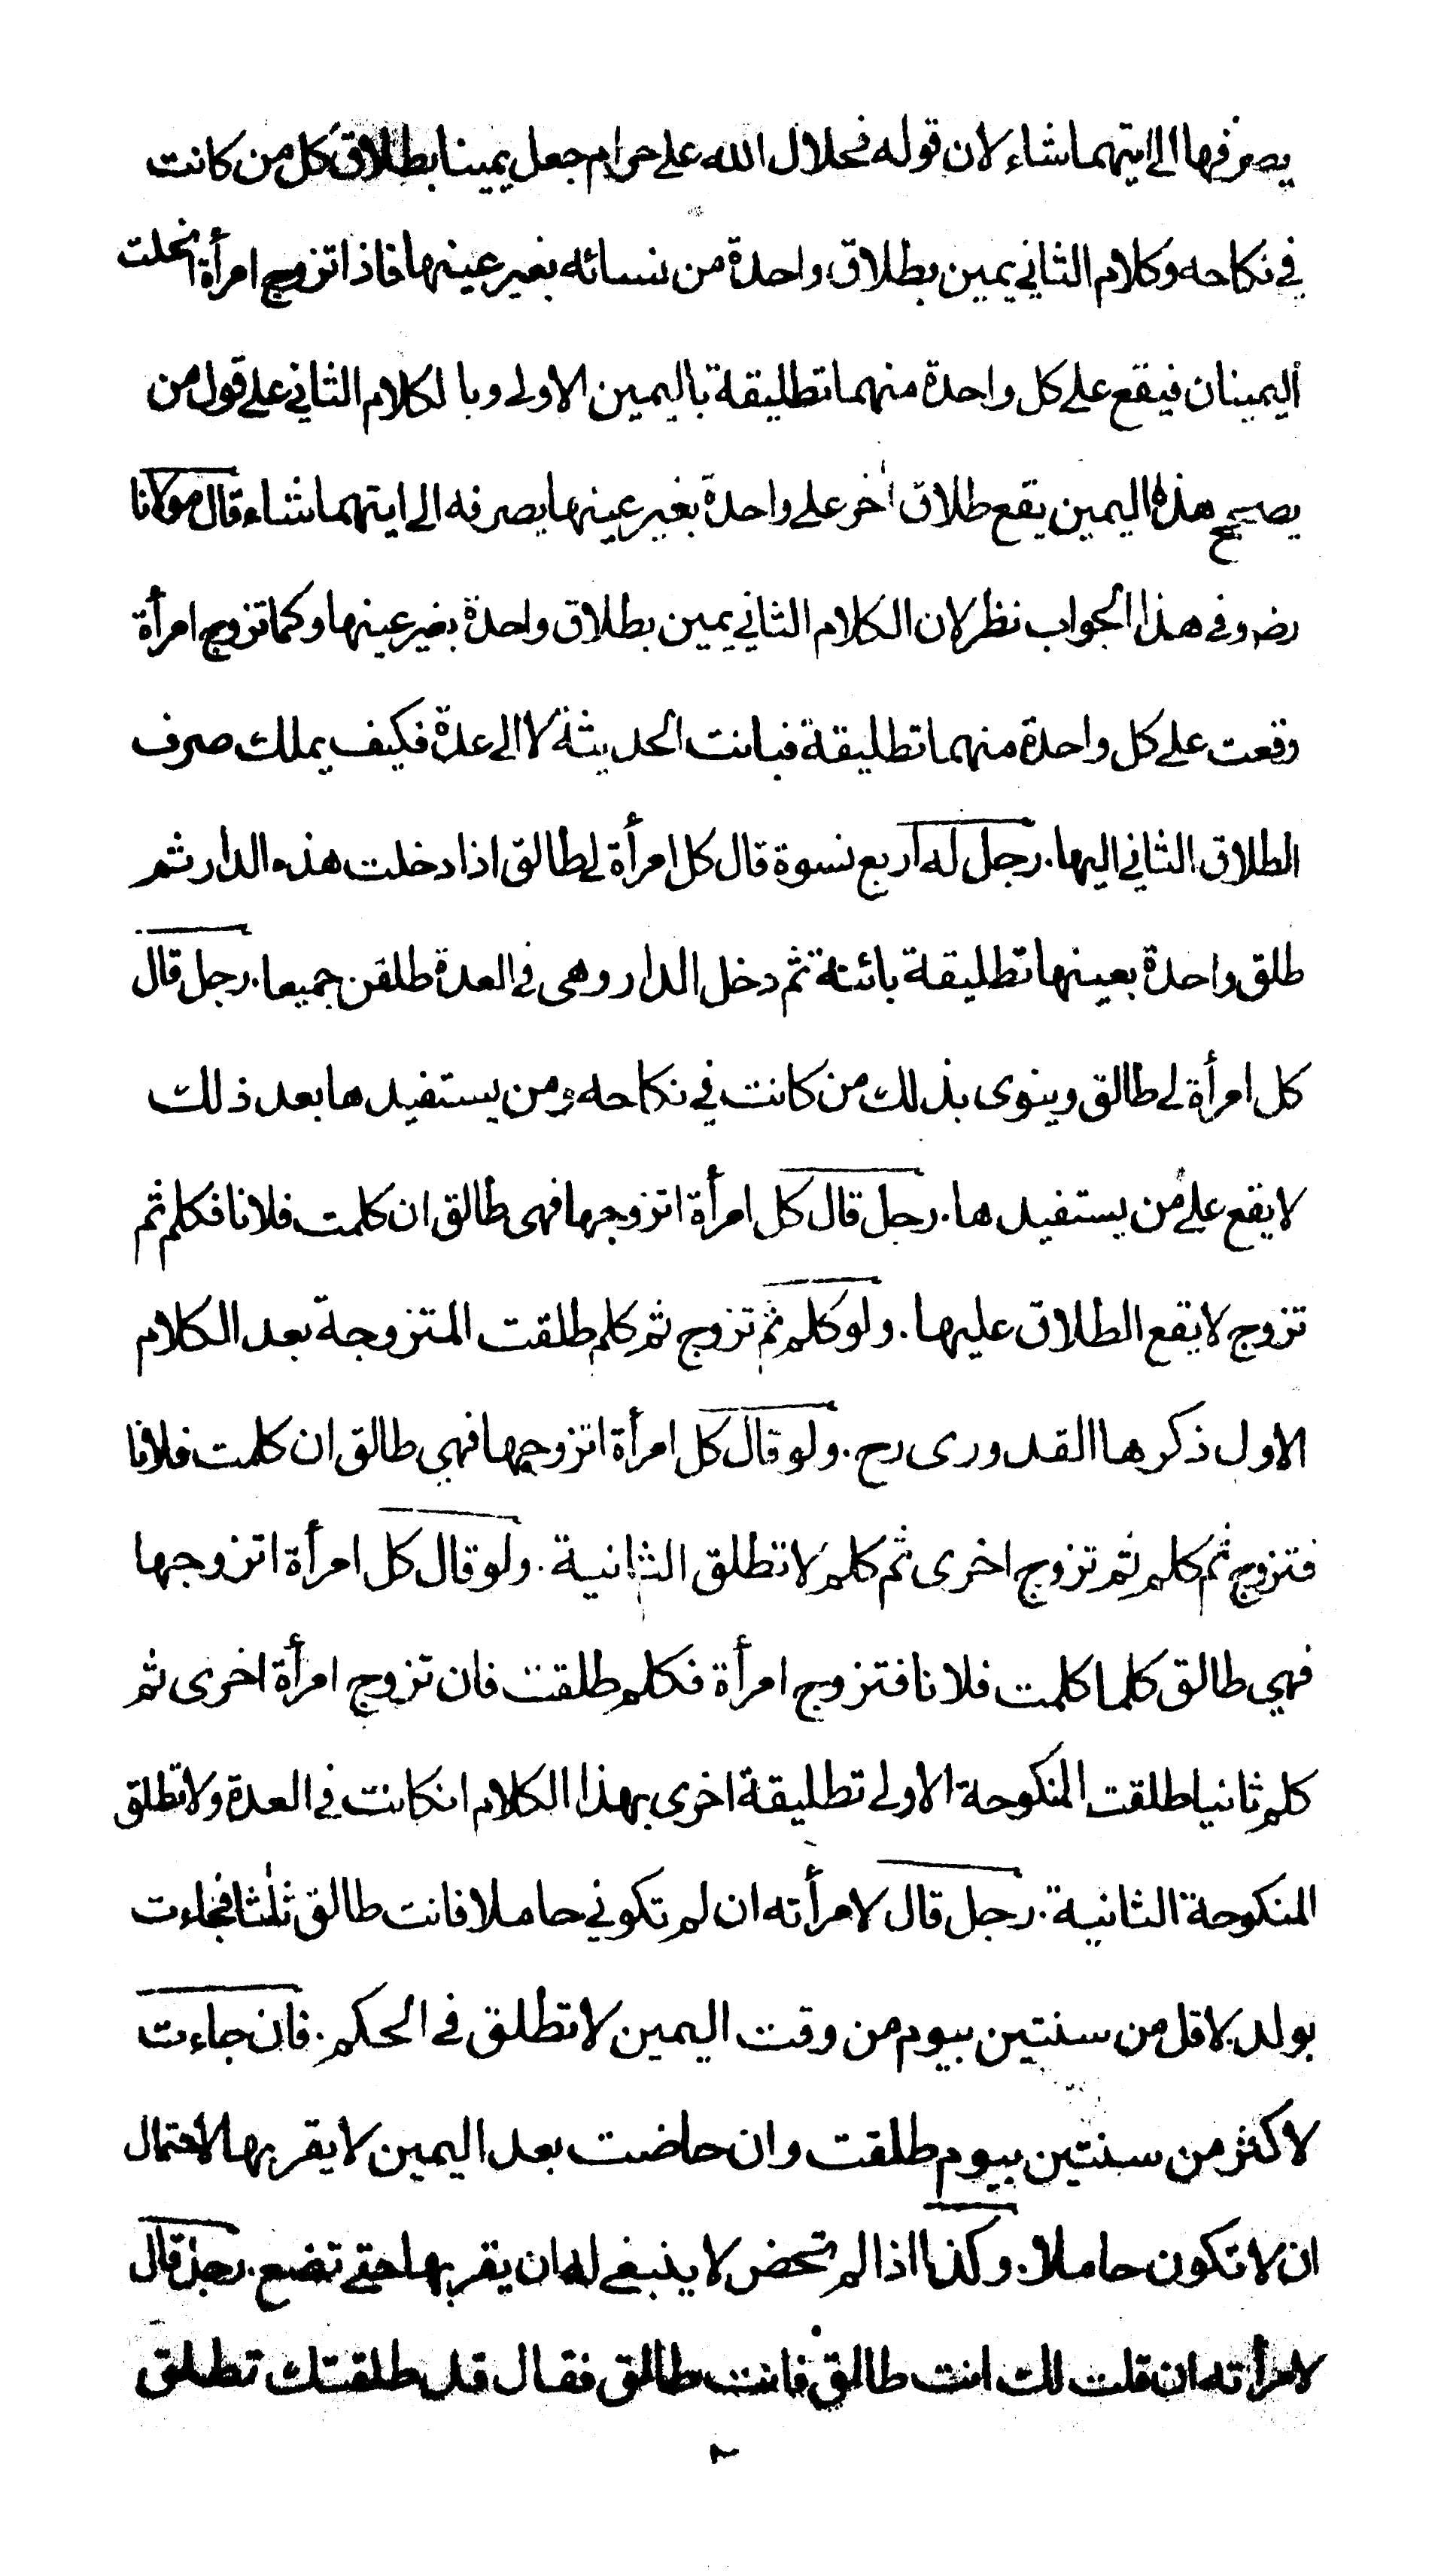 يصرفها الى ايتهما شاء لان قوله فحلال الله على حرام جعل يمينا بطلاق كل من كانت
في نكاحه وكلام الثاني يمين بطلاق واحدة من نسائه بغير عينها فاذا تزوج امرأة انحلت
اليمينان فيقع على كل واحدة منهما تطليقة باليمين الاولى وبالكلام الثاني على قول من
يصحح هذه اليمين يقع طلاق اخر على واحدة بغير عينها يصرفه الى ايتهما شاء قال مولانا
رضه وفي هذا الجواب نظر لان الكلام الثاني يمين بطلاق واحدة بغير عينها وكما تزوج امرأة
وقعت على كل واحدة منهما تطليقة فبانت الحديثة لا الى عدة فكيف يملك صرف
الطلاق الثاني اليها. رجل له اربع نسوة قال كل امرأة لي طالق اذا دخلت هذه الدار ثم
طلق واحدة بعينها تطليقة بائنة ثم دخل الدار وهى في العدة طلقن جميعا. رجل قال
كل امرأة لي طالق وينوى بذلك من كانت في نكاحه ومن يستفيدها بعد ذلك
لا يقع على من يستفيدها. رجل قال كل امرأة اتزوجها فهى طالق ان كلمت فلانا فكلم ثم
تزوج لا يقع الطلاق عليها. ولو كلم ثم تزوج ثم كلم طلقت المتزوجة بعد الكلام
الاول ذكرها القدورى رح. ولو قال كل امرأة اتزوجها فهي طالق ان كلمت فلانا
فتزوج ثم كلم ثم تزوج اخرى ثم كلم لا تطلق الثانية. ولو قال كل امرأة اتزوجها
فهي طالق كلما كلمت فلانا فتزوج امرأة فكلم طلقت فان تزوج امرأة اخرى ثم
كلم ثانيا طلقت المنكوحة الاولى تطليقة اخرى بهذا الكلام انكانت في العدة ولا تطلق
المنكوحة الثانية. رجل قال لامرأته ان لم تكوني حاملا فانت طالق ثلثا فجاءت
بولد لاقل من سنتين بيوم من وقت اليمين لا تطلق في الحكم. فان جاءت
لاكثر من سنتين بيوم طلقت وان حاضت بعد اليمين لا يقربها لاحتمال
ان لا تكون حاملا. وكذا اذا لم تحض لا ينبغي له ان يقربها حتى تضع. رجل قال
لامرأته ان قلت لك انت طالق فانت طالق فقال قد طلقتك تطلق